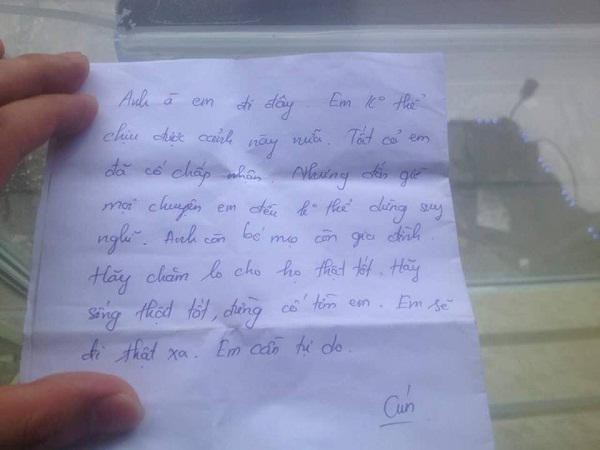 Anh à em đi đây. Em k° thể
chịu được cảnh này nữa. Tất cả em
đã cố chấp nhận. Nhưng đến giờ
mọi chuyện em đều k° thể dừng suy
nghĩ. Anh còn bố mẹ còn gia đình
Hãy chăm lo cho họ thật tốt. Hãy
sống thật tốt, đừng cố tìm em. Em sẽ
đi thật xa. Em cần tự do.
Cún